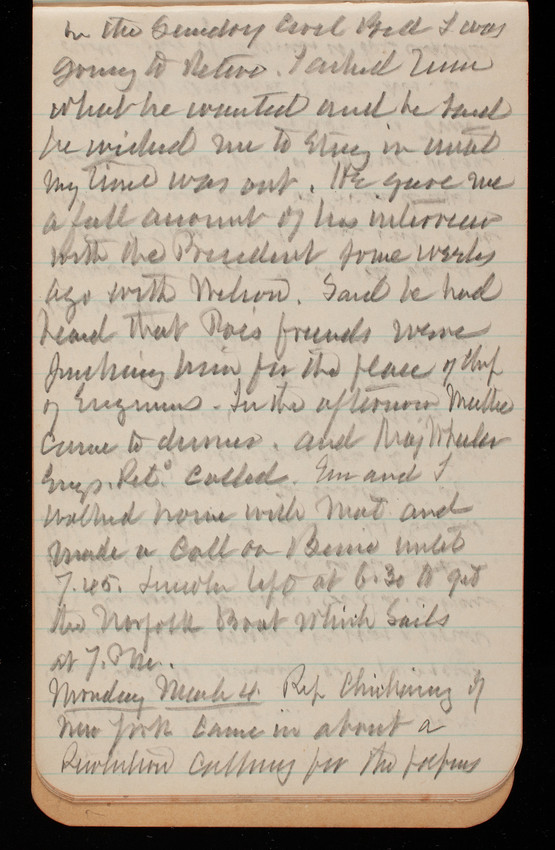 in the Sundry Civil Bill I was
going to Retire. I asked him
what he wanted and he said
he wished me to stay in until
my time was out. He gave me
a full account of his interview
with the President some weeks
ago with Wilson. Said he had
heard that Roes friends were
pushing him for the place of Chf
of Engineers. In the afternoon Mattie
came to dinner. and Maj Wheeler
Engs. Retd Called. Em and I
walked home with Mat and
made a call on until
7.45. Lincoln left at 6.30 to get
the Norfolk Boat which Sails
at 7. PM.
Monday March 4. Rep Chickering of
New York came in about a
Resolution calling for the papers